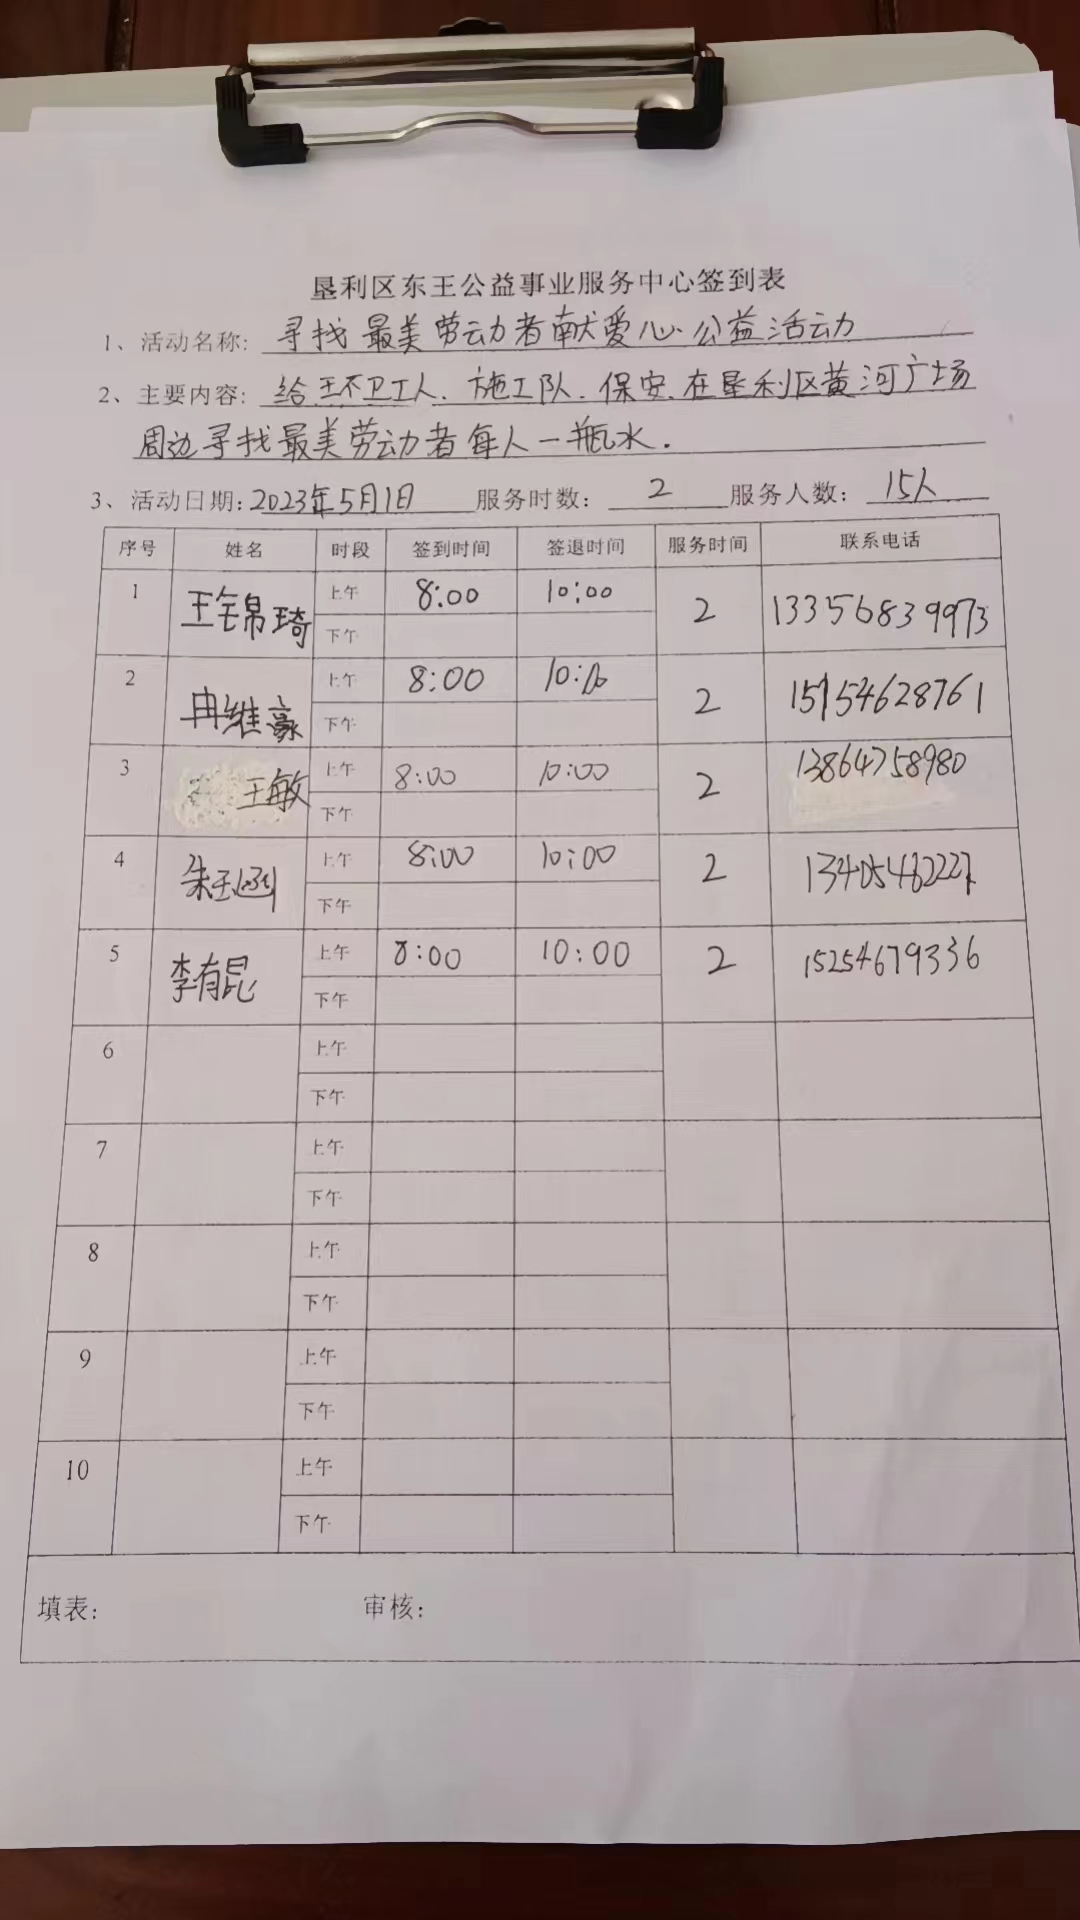 垦利区东王公益事业服务中心签到表
1、活动名称: 寻找最美劳动者献爱心公益活动
2、主要内容: 给环卫工人、施工队、保安、在垦利区黄河广场
周边寻找最美劳动者每人一瓶水.
3、活动日期: 2023年5月1日 服务时数: 2 服务人数: 15人
序号 姓名 时段 签到时间 签退时间 服务时间 联系电话
1 王锦琦 上午 8:00 10:00 2 13356839973
下午
2 冉维豪 上午 8:00 10:00 2 15154628761
下午
3 王敏 上午 8:00 10:00 2 13864758980
下午
4 上午 8:00 10:00 2
下午
5 李有昆 上午 8:00 10:00 2 15254679336
下午
6 上午
下午
7 上午
下午
8 上午
下午
9 上午
下午
10 上午
下午
填表: 审核: